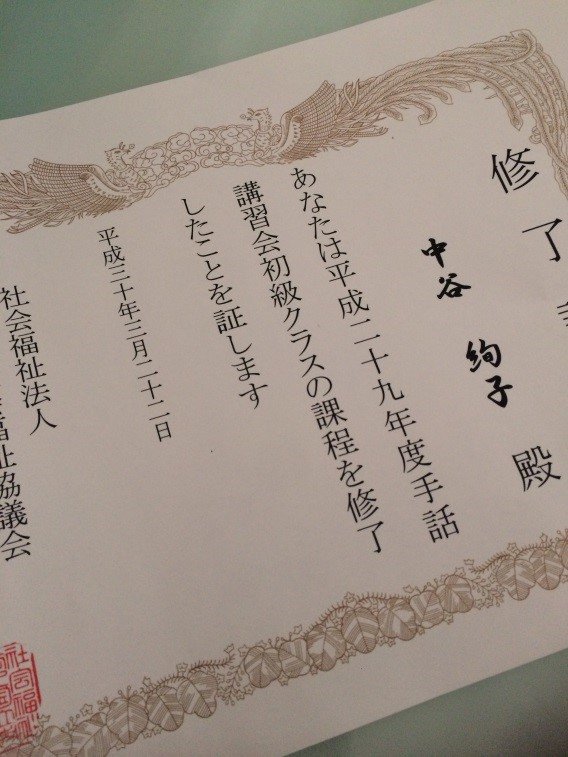 修了証
中谷 絢子 殿
あなたは平成二十九年度手話
講習会初級クラスの課程を修了
したことを証します
平成三十年三月二十二日
社会福祉法人
福祉協議会